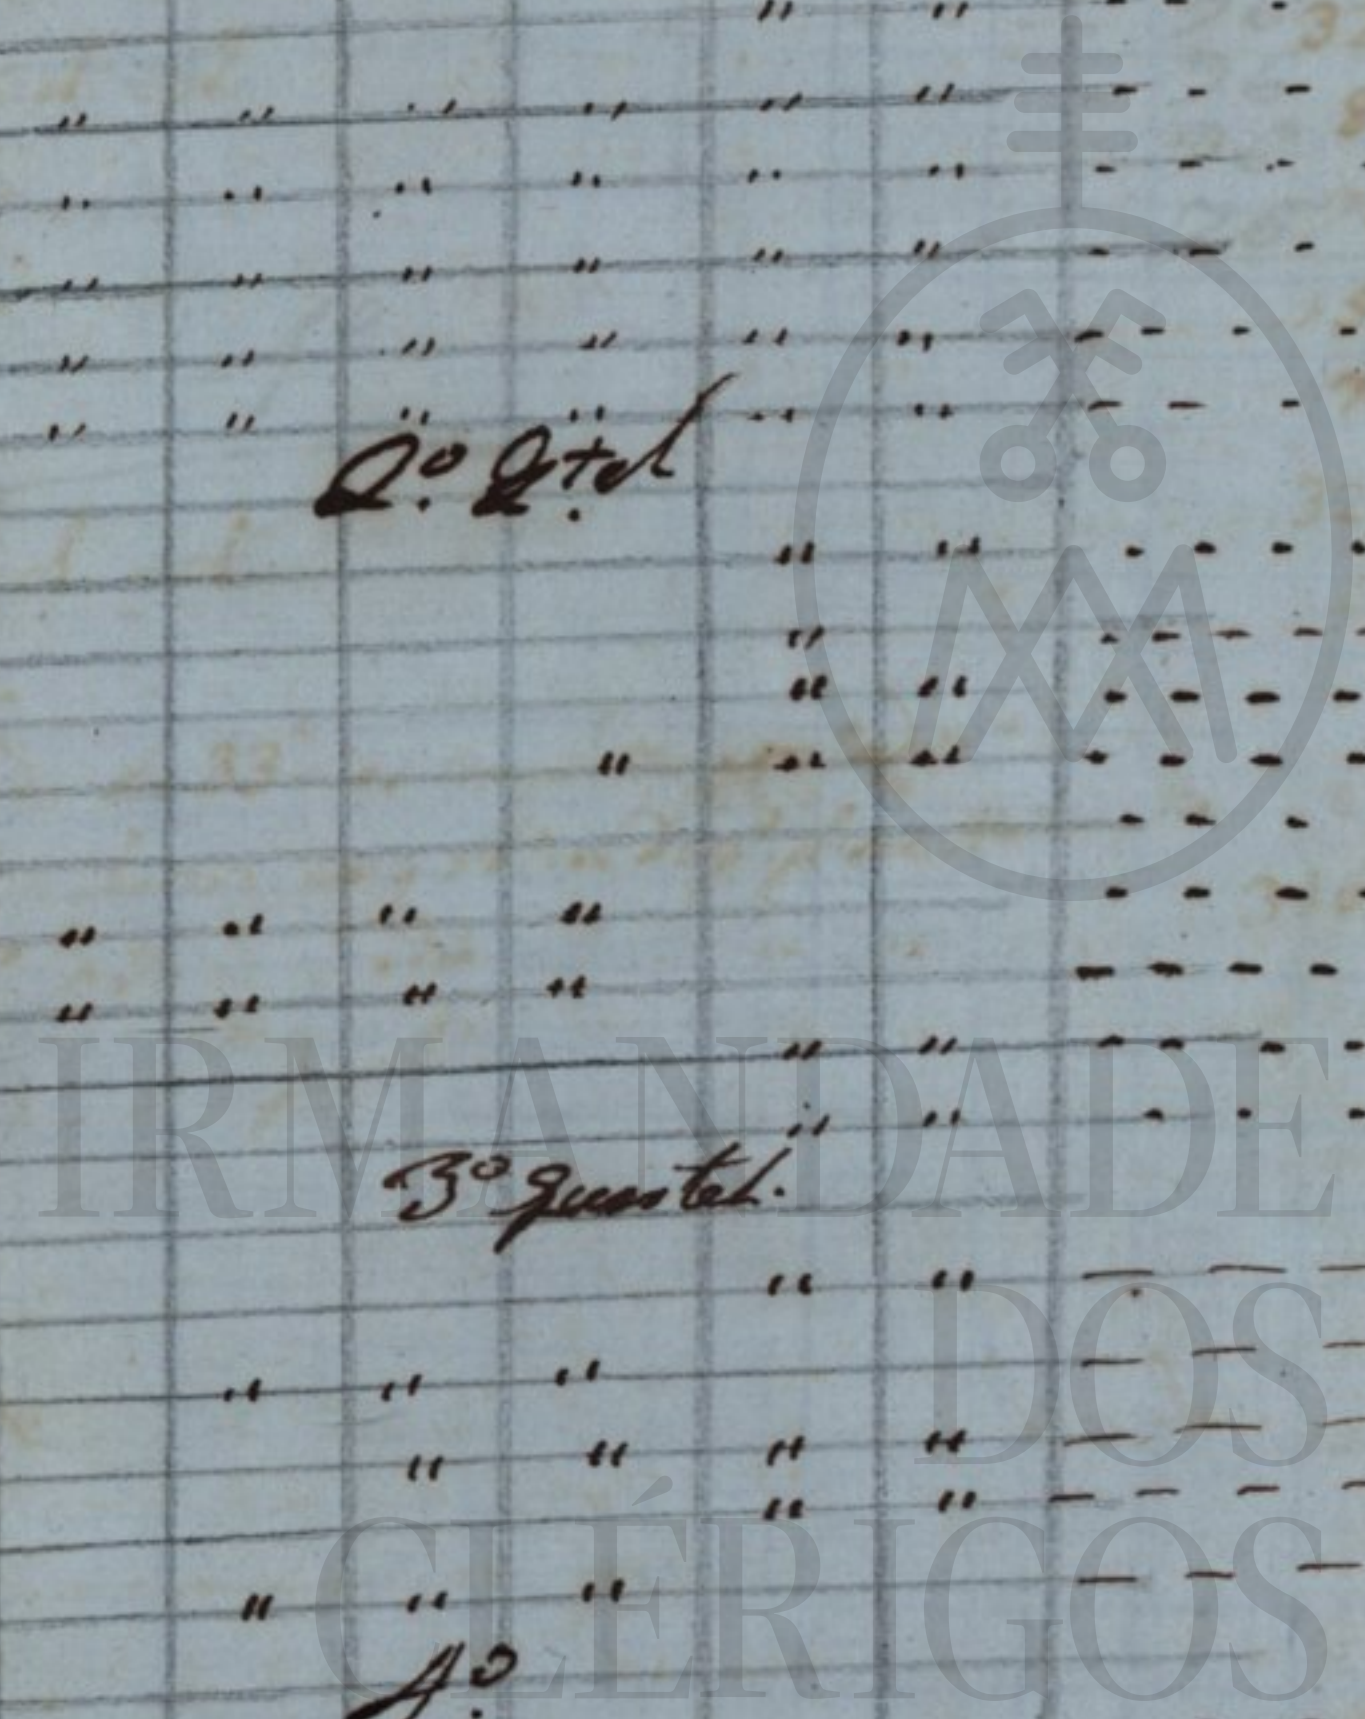 2º. Q.tel
3º quartel.
4º.
IRMANDADE
DOS
CLÉRIGOS